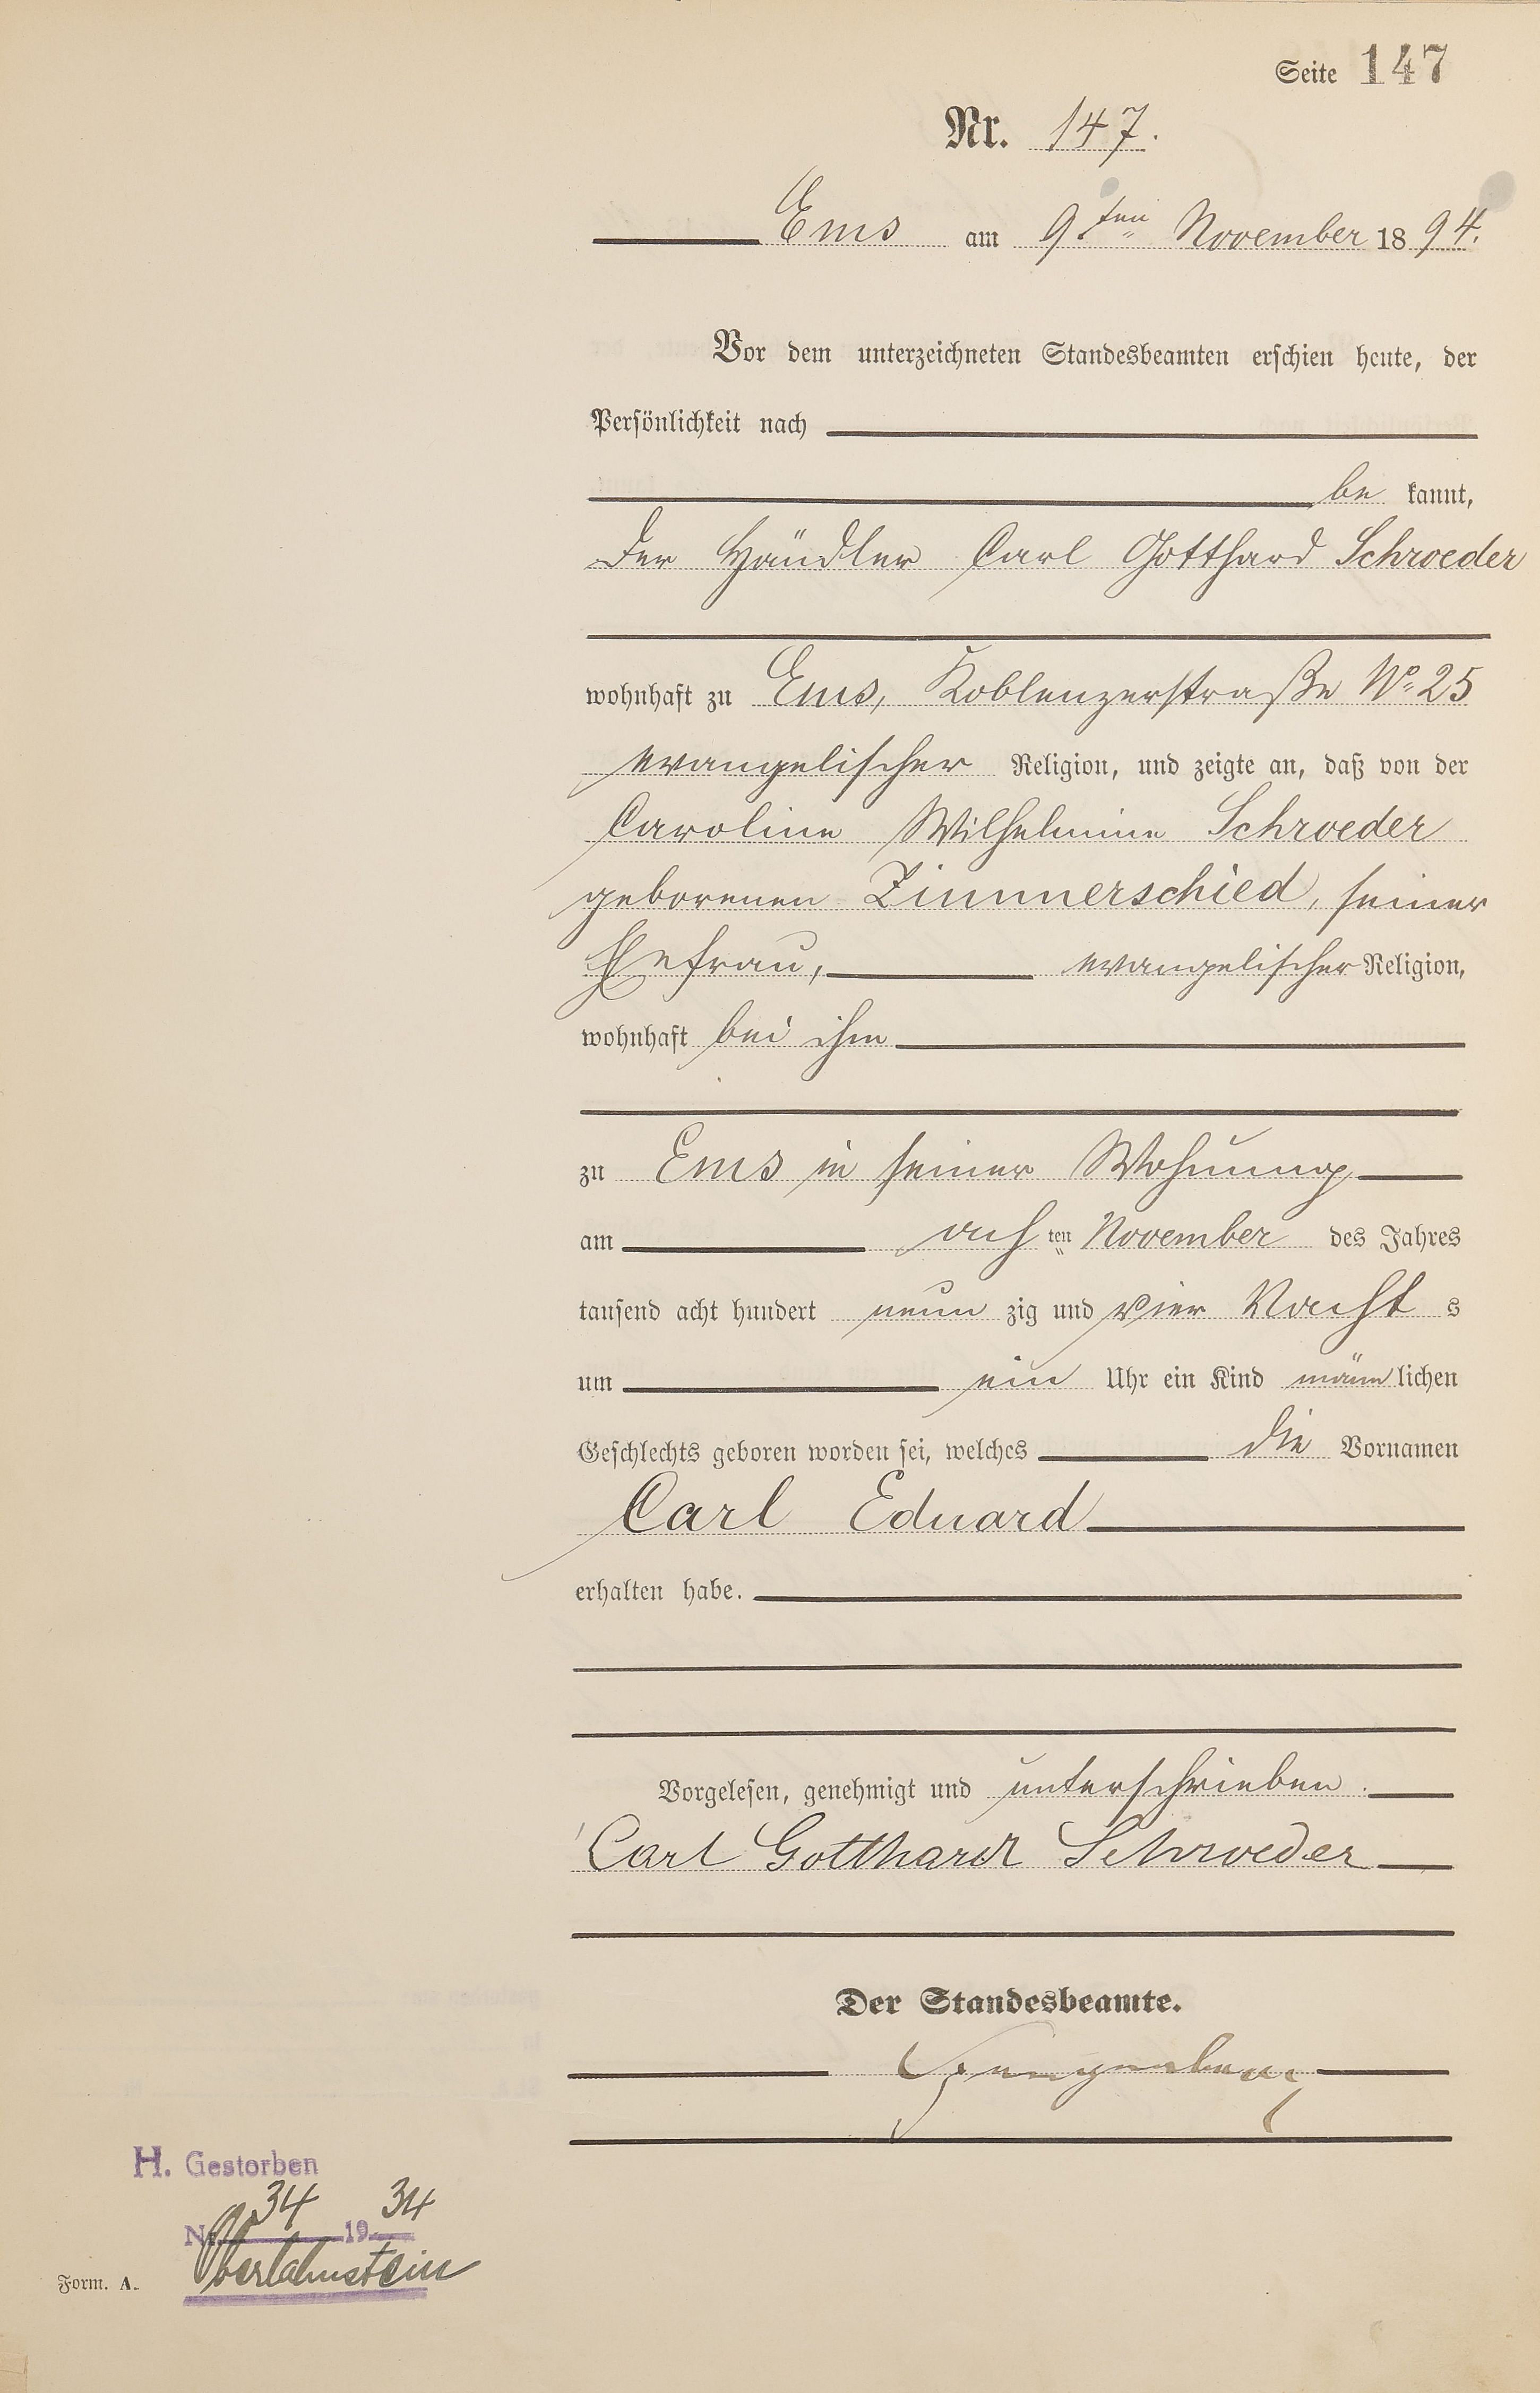 Seite 147
Nr. 147.
Ems am 9ten November 1894.
Vor dem unterzeichneten Standesbeamten erschien heute, der
Persönlichkeit nach
be kannt,
der Händler Carl Gotthard Schroeder
wohnhaft zu Ems, Koblenzerstraße No 25
evangelischer Religion, und zeigte an, daß von der
Caroline Wilhelmine Schroeder
geborenen Zimmerschied, seiner
Ehefrau, evangelischer Religion,
wohnhaft bei ihm
zu Ems in seiner Wohnung
am achten November des Jahres
tausend acht hundert neun zig und vier Nacht s
um ein Uhr ein Kind männlichen
Geschlechts geboren worden sei, welches die Vornamen
Carl Eduard
erhalten habe.
Vorgelesen, genehmigt und unterschrieben.
Carl Gotthard Schroeder
Der Standesbeamte.
H. Gestorben
Nr. 34 1934
Oberlahnstein
Form. A.